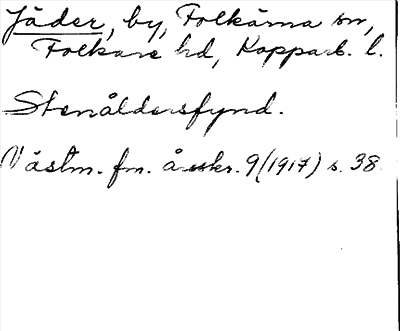 Jäder, by, Folkärna sn,
Folkare hd, Kopparb. l.
Stenåldersfynd.
Västm. fm. årsskr. 9 (1917) s. 38